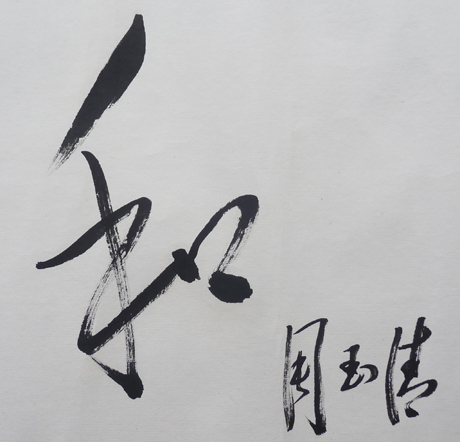 和
周玉清